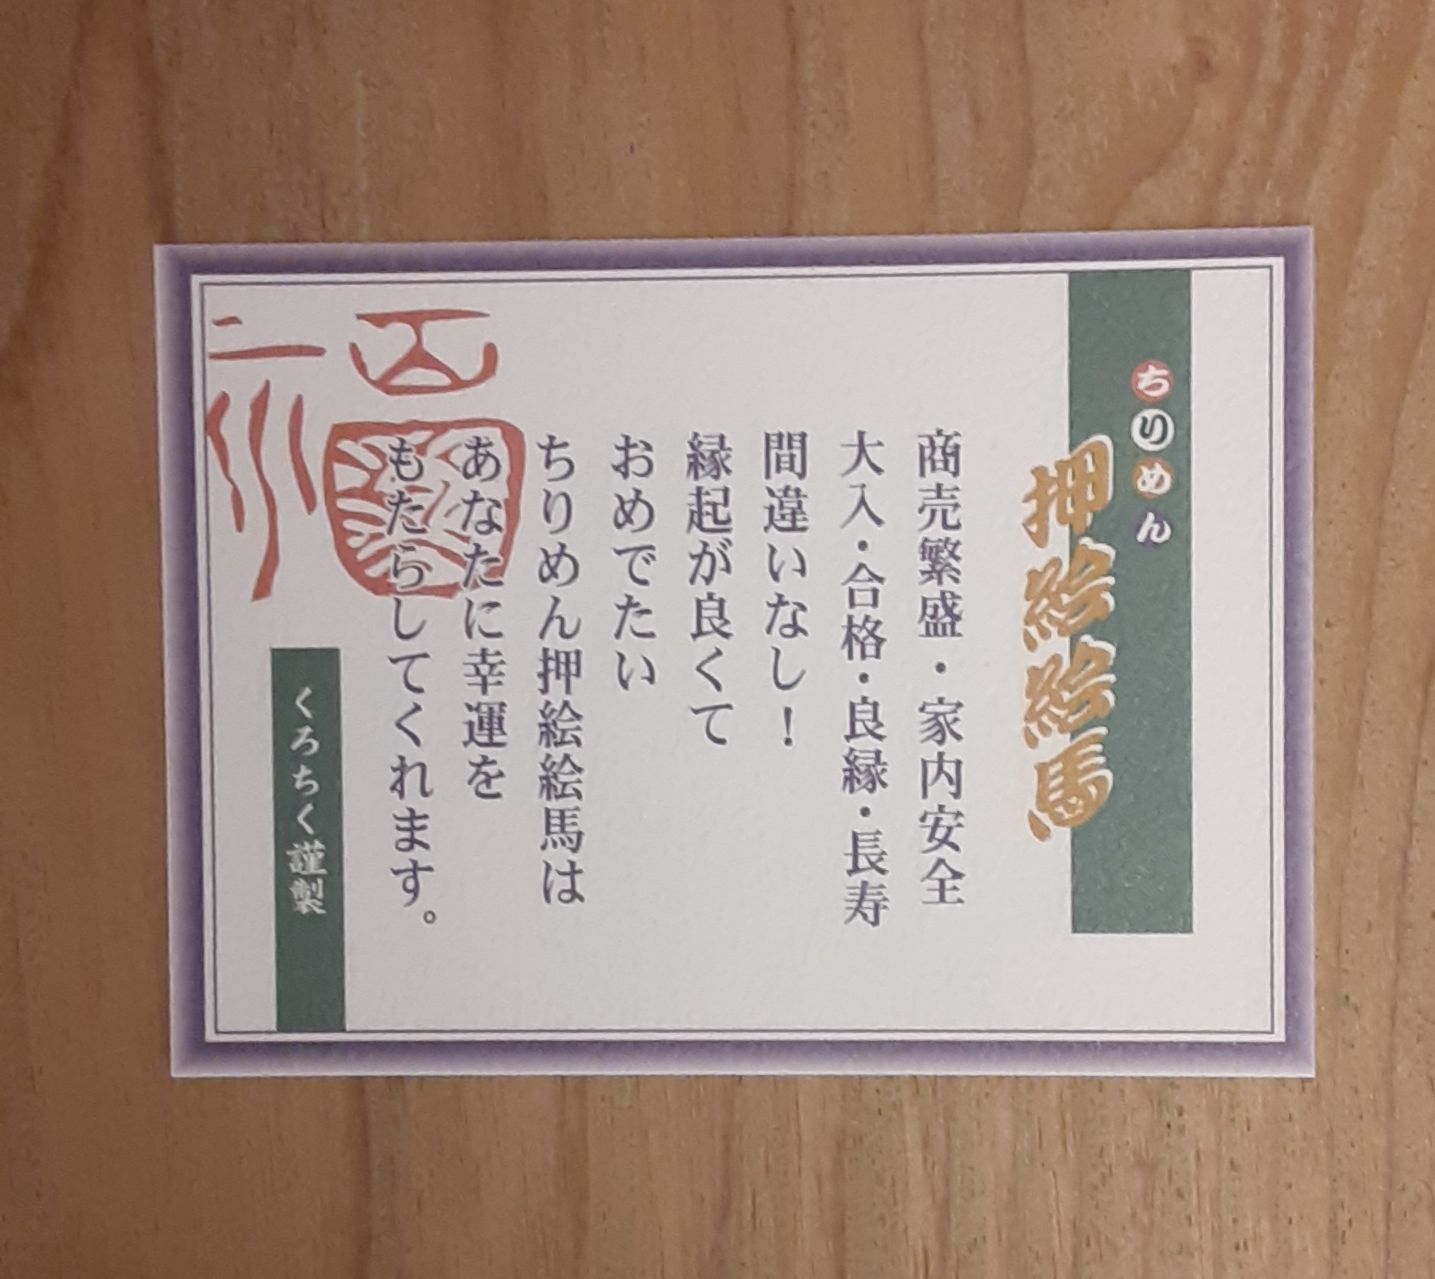 ちりめん
押絵絵馬
商売繁盛・家内安全
大入・合格・良縁・長寿
間違いなし！
縁起が良くて
おめでたい
ちりめん押絵絵馬は
あなたに幸運を
もたらしてくれます。
くろちく謹製